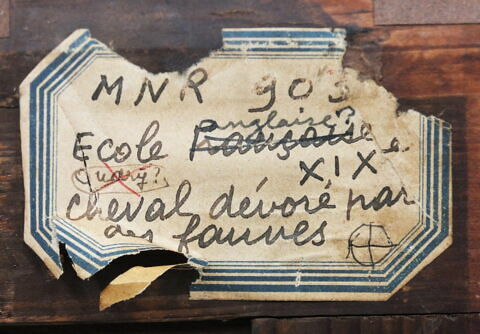 MNR 903
anglaise?
Ecole Française
XIXe
cheval dévoré par
des fauves